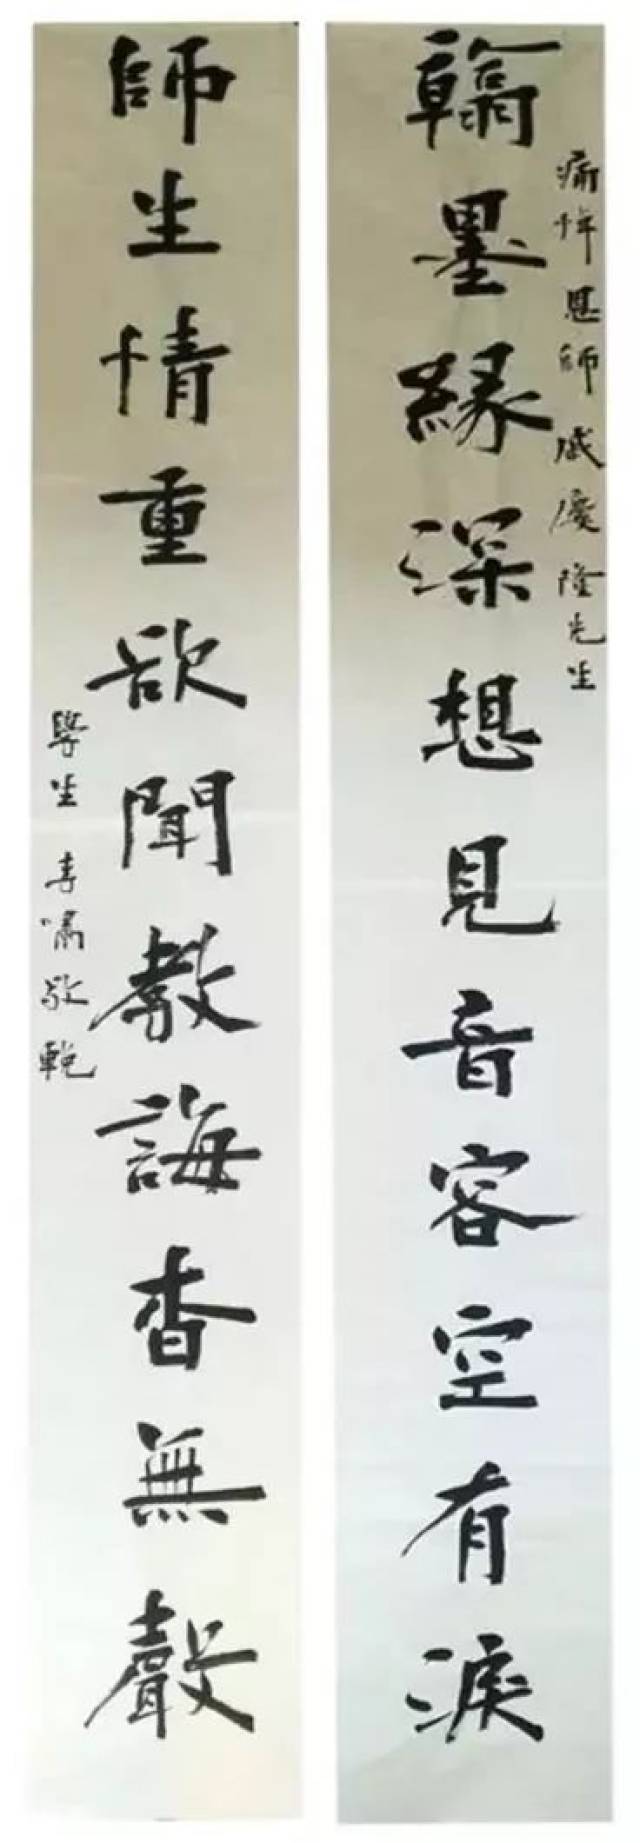 翰墨緣深想見音容空有淚
痛悼恩師戚慶隆先生
師生情重欲聞教誨杳無聲
學生李嘯敬輓